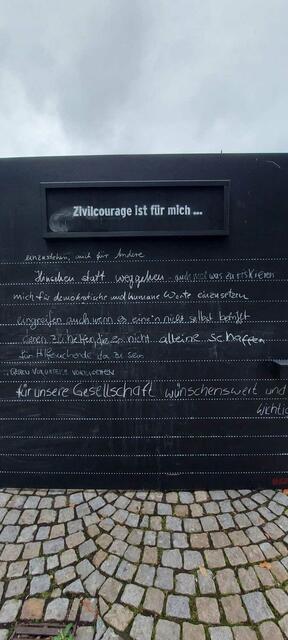 Zivilcourage ist für mich ...
einzustehen, auch für Andere
Hinsehen statt weggehen - auch mal was zu riskieren
mich für demokratische und humane Werte einzusetzen
eingreifen auch wenn es eine'n nicht selbst betrifft
denen zu helfen, die es nicht alleine schaffen
für Hilfesuchende da zu sein
gegen Vorurteile vorzugehen
für unsere Gesellschaft wünschenswert und
wichtig